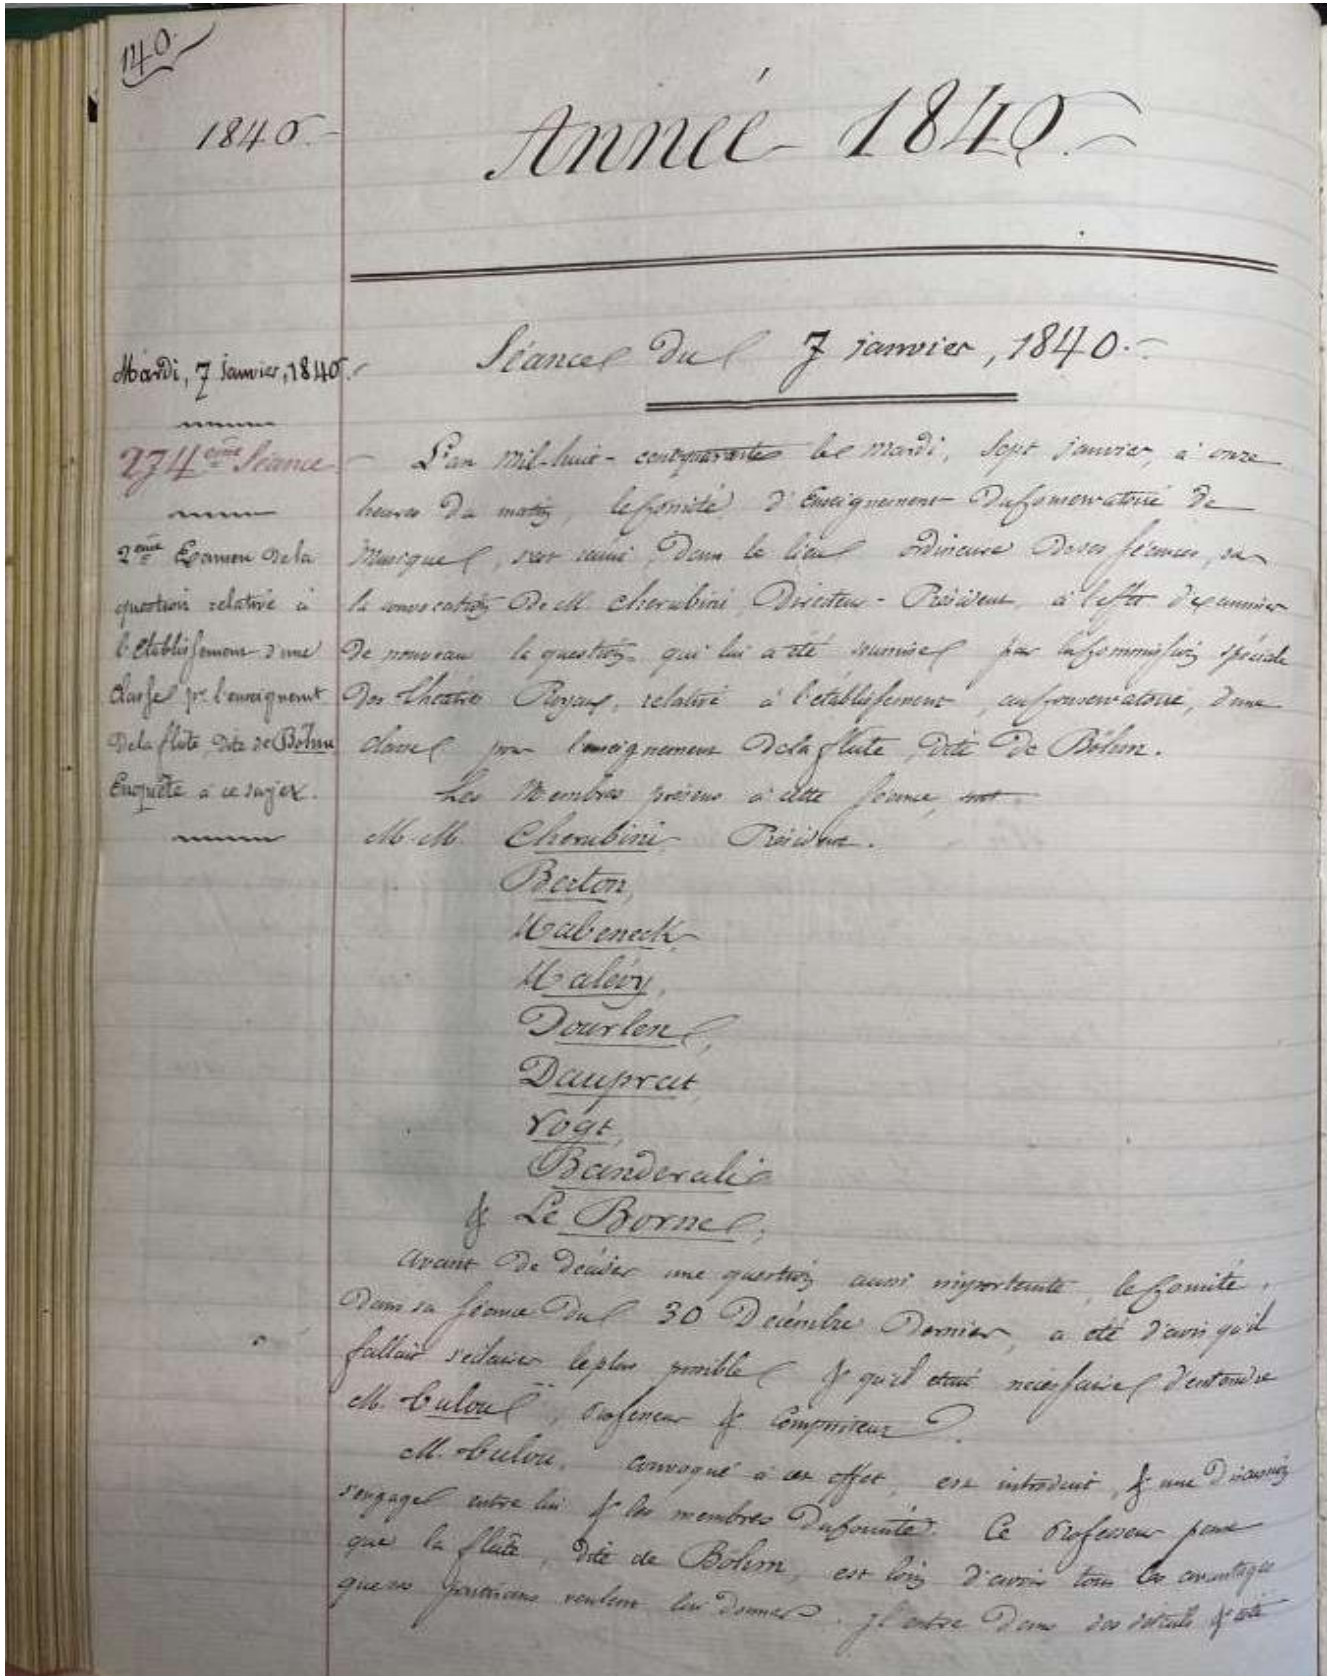 140.
1840.
Année 1840.
Séance du 7 janvier, 1840.
Mardi, 7 Janvier, 1840.
274ème Séance
2ème Examen de la
question relative à
l'établissement d'une
classe pr. l'enseignemt
de la flûte, dite de Böhm
Enquête à ce sujet.
L'an mil-huit-cent quarante le mardi, sept janvier, à onze
heures du matin, le Comité d'Enseignement du Conservatoire de
Musique, s'est réuni, dans le lieu ordinaire de ses séances, sur
la convocation de M. Cherubini, Directeur-Président, à l'effet d'examiner
de nouveau la question qui lui a été soumise par la Commission spéciale
des théâtres Royaux, relative à l'établissement, au Conservatoire, d'une
classe pour l'enseignement de la flûte, dite de Böhm.
Les Membres présens à cette séance, sont
M.M. Cherubini Président.
Berton,
Habeneck,
Halévy,
Dourlen,
Dauprat,
Vogt,
Banderali
& Le Borne,
Avant de décider une question aussi importante, le Comité,
dans sa séance du 30 Décembre dernier, a été d'avis qu'il
fallait s'éclairer le plus possible & qu'il était nécessaire d'entendre
M. Tulou, Professeur & Compositeur.
M. Tulou, convoqué à cet effet, est introduit, & une discussion
s'engage entre lui & les membres du Comité. Ce Professeur pense
que la flûte, dite de Böhm, est loin d'avoir tous les avantages
que ses partisans veulent lui donner. Il entre dans des détails &